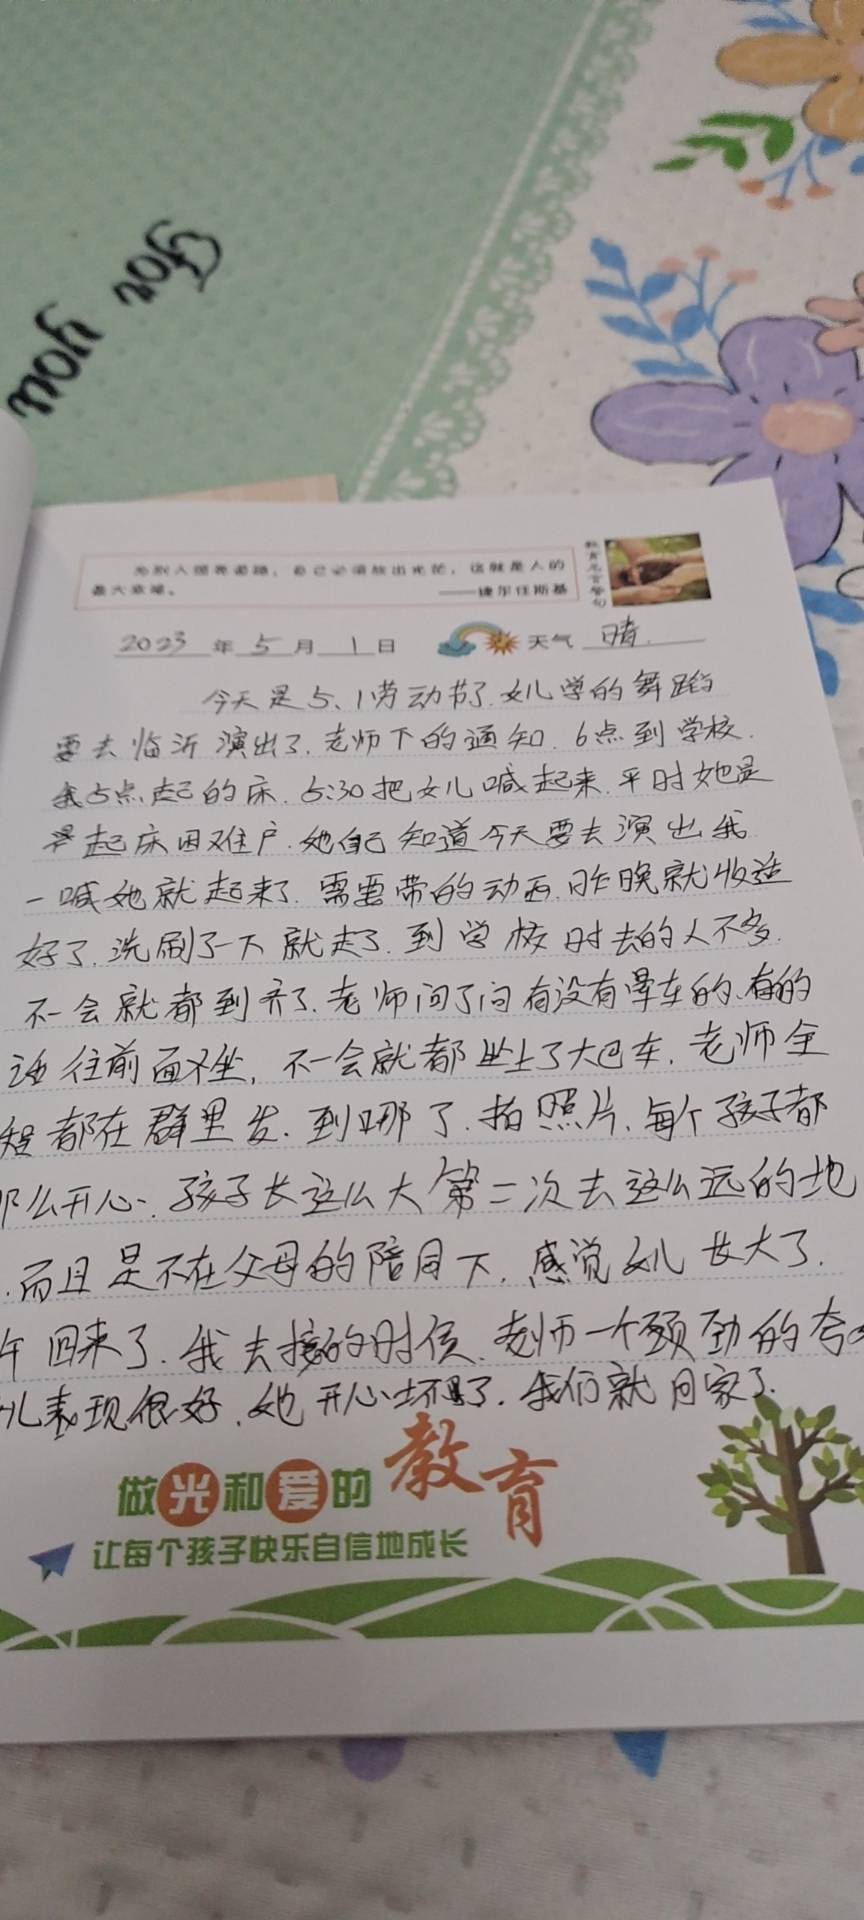 for you
为别人照亮道路，自己必须放出光芒，这就是人的
最大幸福。 ——捷尔任斯基
教育名言警句
2023 年 5 月 1 日 天气 晴.
今天是5、1劳动节了.女儿学的舞蹈
要去临沂演出了.老师下的通知.6点到学校.
我5点起的床.5:30把女儿喊起来.平时她是
起床困难户.她自己知道今天要去演出我
一喊她就起来了.需要带的动西.昨晚就收适
好了.洗刷了一下就走了.到学校时去的人不多.
不一会就都到齐了.老师问了问有没有晕车的、有的
话往前面坐，不一会就都坐上了大巴车.老师全
程都在群里发.到哪了.拍照片.每个孩子都
那么开心.孩子长这么大第二次去这么远的地
.而且是不在父母的陪同下.感觉女儿长大了.
午回来了.我去接的时侯.老师一个颈劲的夸
儿表现很好.她开心坏了.我们就回家了.
做光和爱的教育
让每个孩子快乐自信地成长